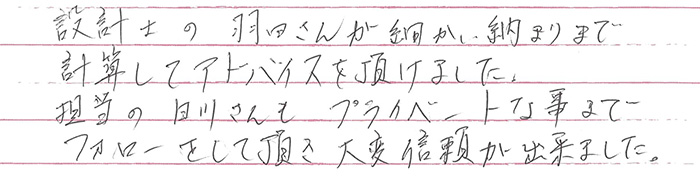 設計士の羽田さんが細かい納まりまで
計算してアドバイスを頂けました。
担当の田川さんも プライベートな事まで
フォローをして頂き 大変信頼が出来ました。